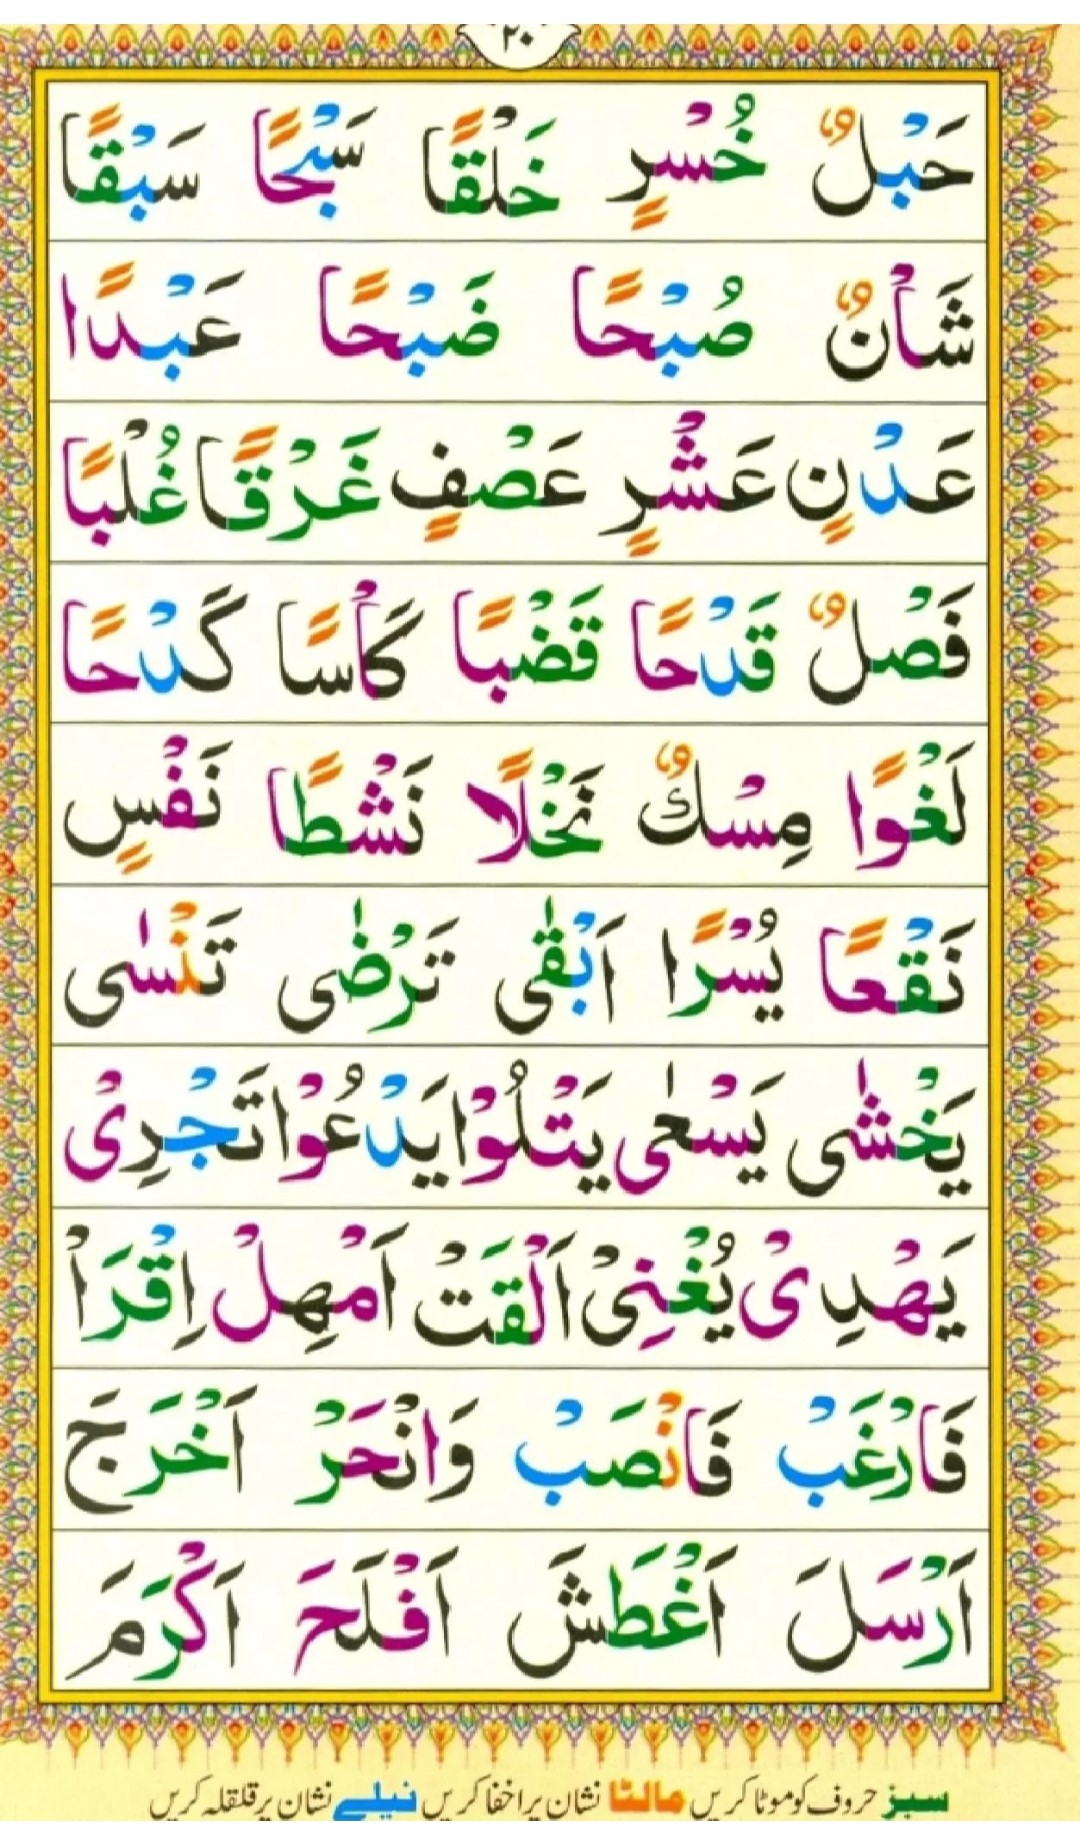 ٢٠
حَبْلٌ خُسْرٍ خَلْقًا سَبْحًا سَبْقًا
شَأْنٌ صُبْحًا ضَبْحًا عَبْدًا
عَدْنٍ عَشْرٍ عَصْفٍ غَرْقًا غُلْبًا
فَصْلٌ قَدْحًا قَضْبًا كَأْسًا كَدْحًا
لَغْوًا مِسْكٌ نَخْلًا نَشْطًا نَفْسٍ
نَقْعًا يُسْرًا اَبْقٰى تَرْضٰى تَنْسٰى
يَخْشٰى يَسْعٰى يَتْلُوْا يَدْعُوْا تَجْرِىْ
يَهْدِىْ يُغْنِىْ اَلْقَتْ اَمْهِلْ اِقْرَاْ
فَارْغَبْ فَانْصَبْ وَانْحَرْ اَخْرَجَ
اَرْسَلَ اَغْطَشَ اَفْلَحَ اَكْرَمَ
سبز حروف کو موٹا کریں مالٹا نشان پر اخفا کریں نیلے نشان پر قلقلہ کریں